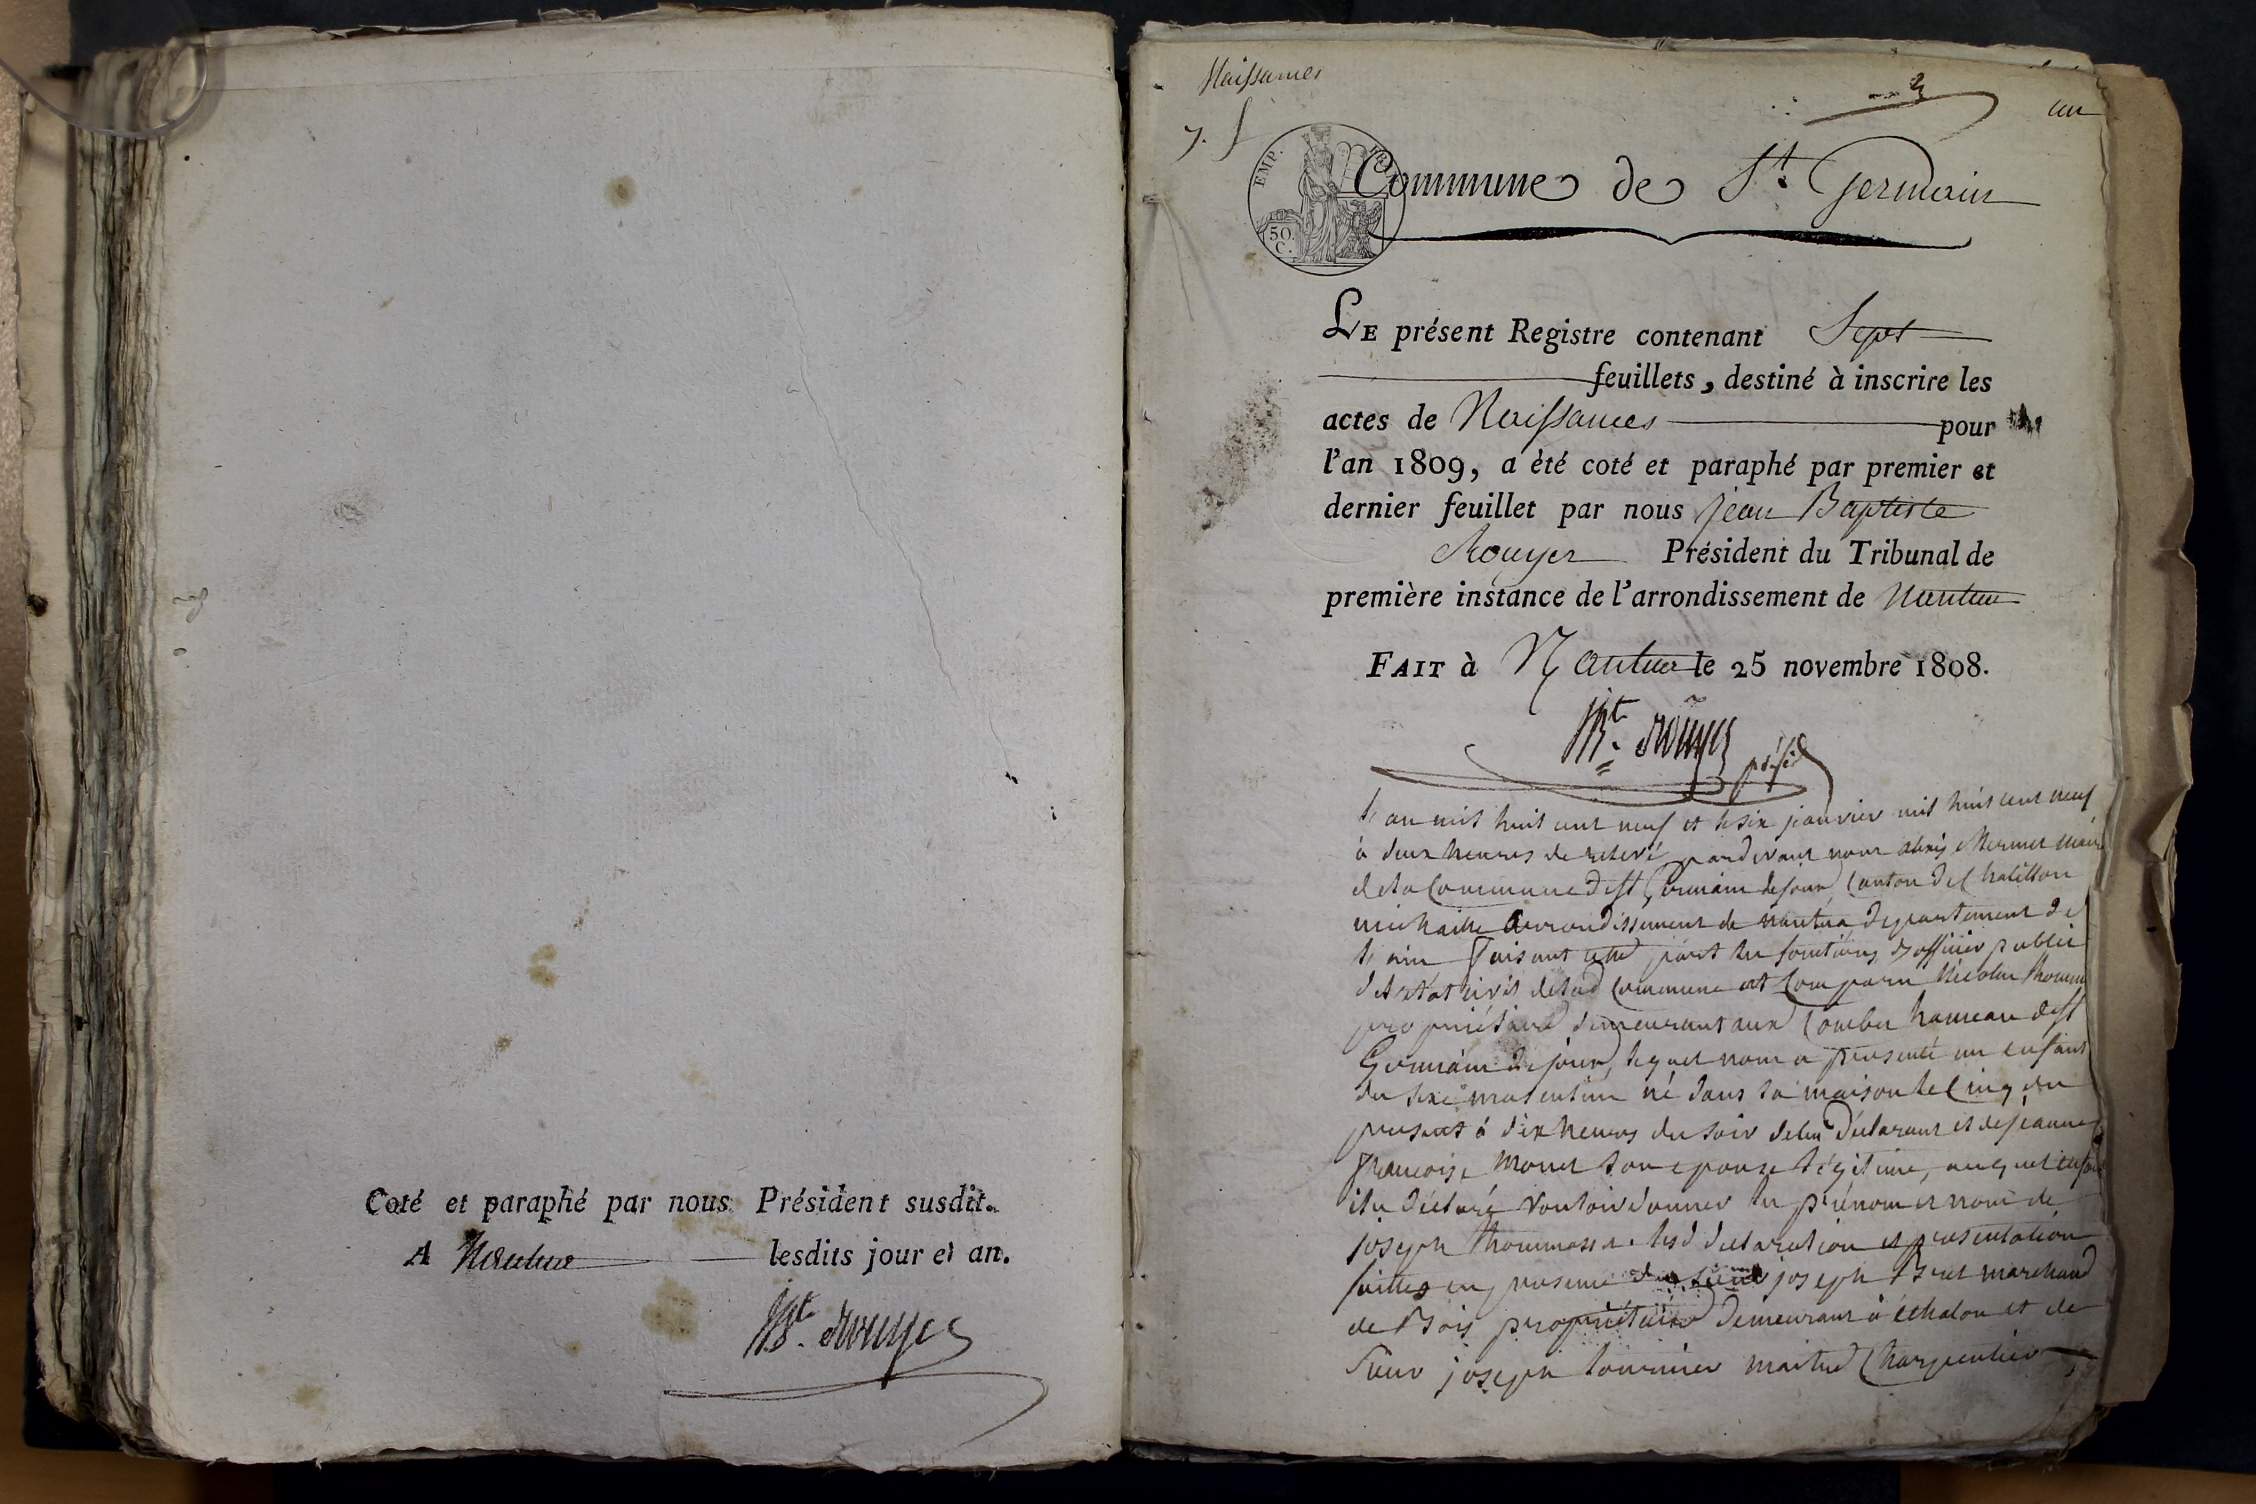 Coté et paraphé par nous Président susdit.
A Nantua lesdits jour et an.
JBte. Rouyer
Naissances
7. f
2
un
EMP. FR.
50. C.
Commune de St. Germain
LE présent Registre contenant Sept
feuillets, destiné à inscrire les
actes de Naissances pour
l'an 1809, a été coté et paraphé par premier et
dernier feuillet par nous Jean Baptiste
Rouyer Président du Tribunal de
première instance de l'arrondissement de Nantua
FAIT à Nantua le 25 novembre 1808.
JBt. Rouyer présid
L'an mil huit cent neuf et le six janvier mil huit cent neuf
à deux heures de relevé pardevant nous alexis Mermet maire
de la Commune de st Germain de joux Canton de Chatillon
michaille arrondissement de nantua departement de
l'ain faisant les fonctions d'officier public
de l'etat civil de lad commune est Comparu Nicolas
propriétaire demeurant aux Combes hameau de st
Germain de joux, lequel nous a presenté un enfant
du sexe masculin né dans sa maison le Cinq du
present à dix heures du soir de lui déclarant et de jeanne
françoise Monet son epouse légitime, auquel enfant
il a déclaré vouloir donner les prénom et nom de
joseph Thommasset. lesd declaration et presentation
faittes en presence du sieur joseph Bret marchand
de Bois propriétaire demeurant à échalon et de
Sieur joseph tournier maitre Charpentier